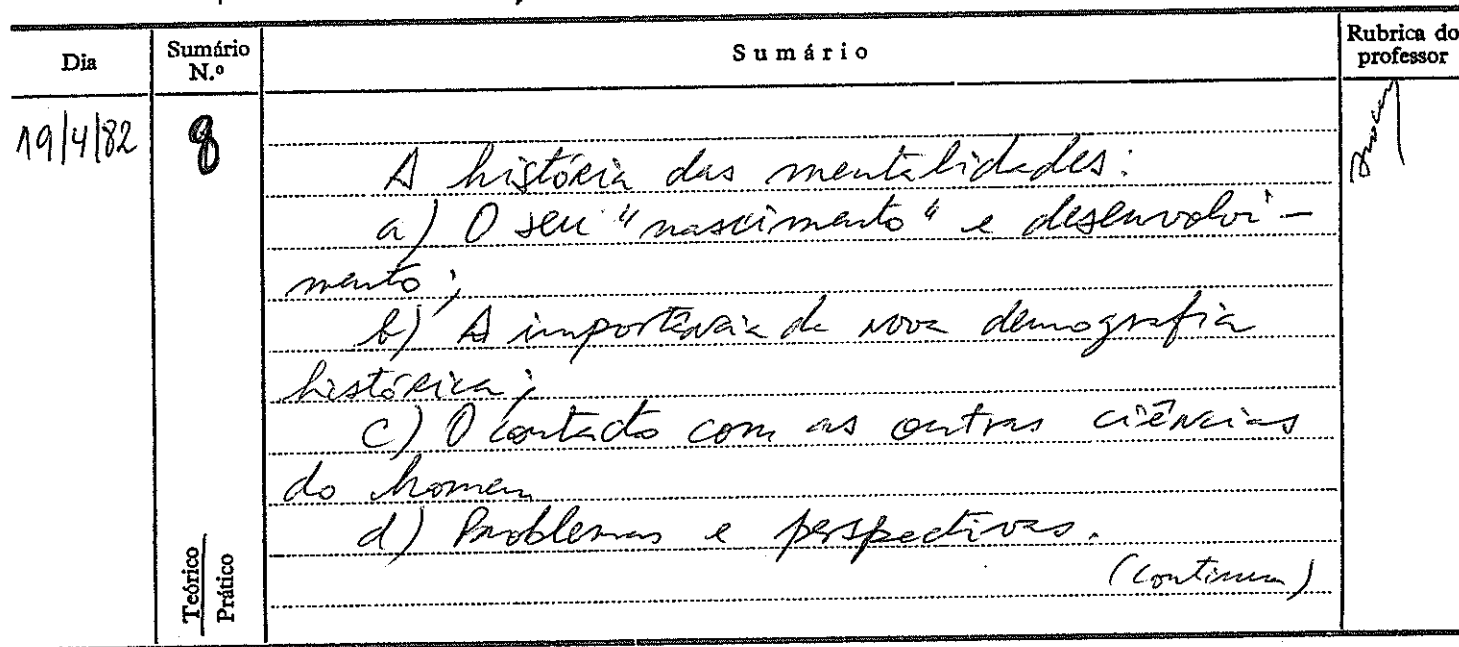 Dia
Sumário N.º
Sumário
Rubrica do professor
19/4/82
8
A história das mentalidades:
a) O seu "nascimento" e desenvolvi-
mento;
b) A importância da nova demografia
histórica;
c) O contacto com as outras ciências
do homem
d) Problemas e perspectivas.
(continua)
Teórico
Prático